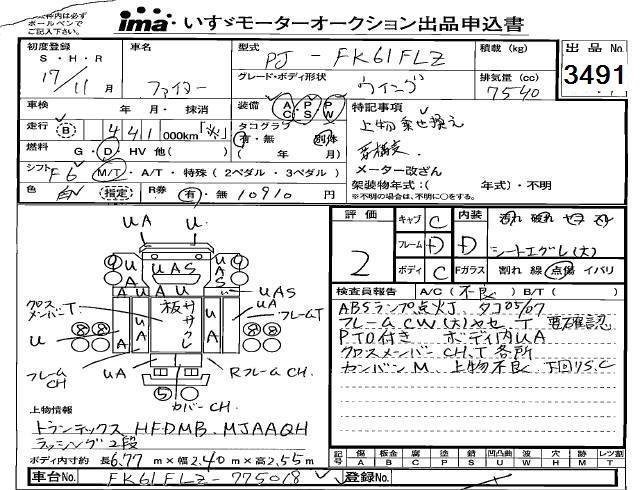 枠内は必ず
ボールペンで
ご記入下さい。
ima いすゞモーターオークション出品申込書
初度登録
S・H・R
17/11月
車名
ファイター
型式
PJ - FK61FLZ
グレード・ボディ形状
ウイング
積載(kg)
排気量(cc)
7540
出品No.
3491
車検
年 月・抹消
装備
AC PS PW
特記事項
上物乗せ換え
要構変
メーター改ざん
架装物年式:( 年式)・不明
※不明の場合は、不明に○をする。
走行
B
441000km
タコグラフ
有・無 別体
( 年 月)
燃料
G・D・HV 他( )
シフト
F6 M/T・A/T・特殊(2ペダル・3ペダル)
色
白 指定
R券
有・無 10910円
評価
2
キャブ C
フレーム D
ボディ C
内装
D
シートエグレ(大)
Fガラス
割れ 線 点傷 イバリ
検査員報告
A/C(不良)B/T( )
ABSランプ点火灯、タコ05/07
フレームCW(大)ヤセ、T 要確認
PTO付き ボディ内UA
クロスメンバーCH、T各所
カンバンM 上物不良 下回りS、C
UA
U
UAS
A
A U A
UAS
UA
UA
UA
板ササクレ
クロスメンバーT
フレームT
U
フレームCH
UA
RフレームCH
カバーCH
上物情報
トランテックス HFDMB-MJAAQH
ラッシング2段
ボディ内寸約 長6.77m×幅2.40m×高2.55m
記号
傷 板金 腐 塗 錆 凹凸曲 割 穴 跡 レツ割
A B C P S U W H M T
車台No.
FK61FLZ-775018
登録No.